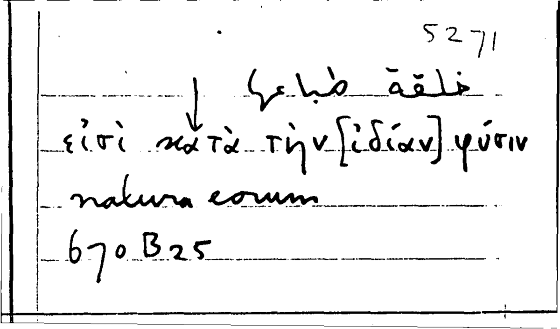 5271
خلقة طباعها
εἰσὶ κατὰ τὴν [ἰδίαν] φύσιν
natura eorum
670 B 25